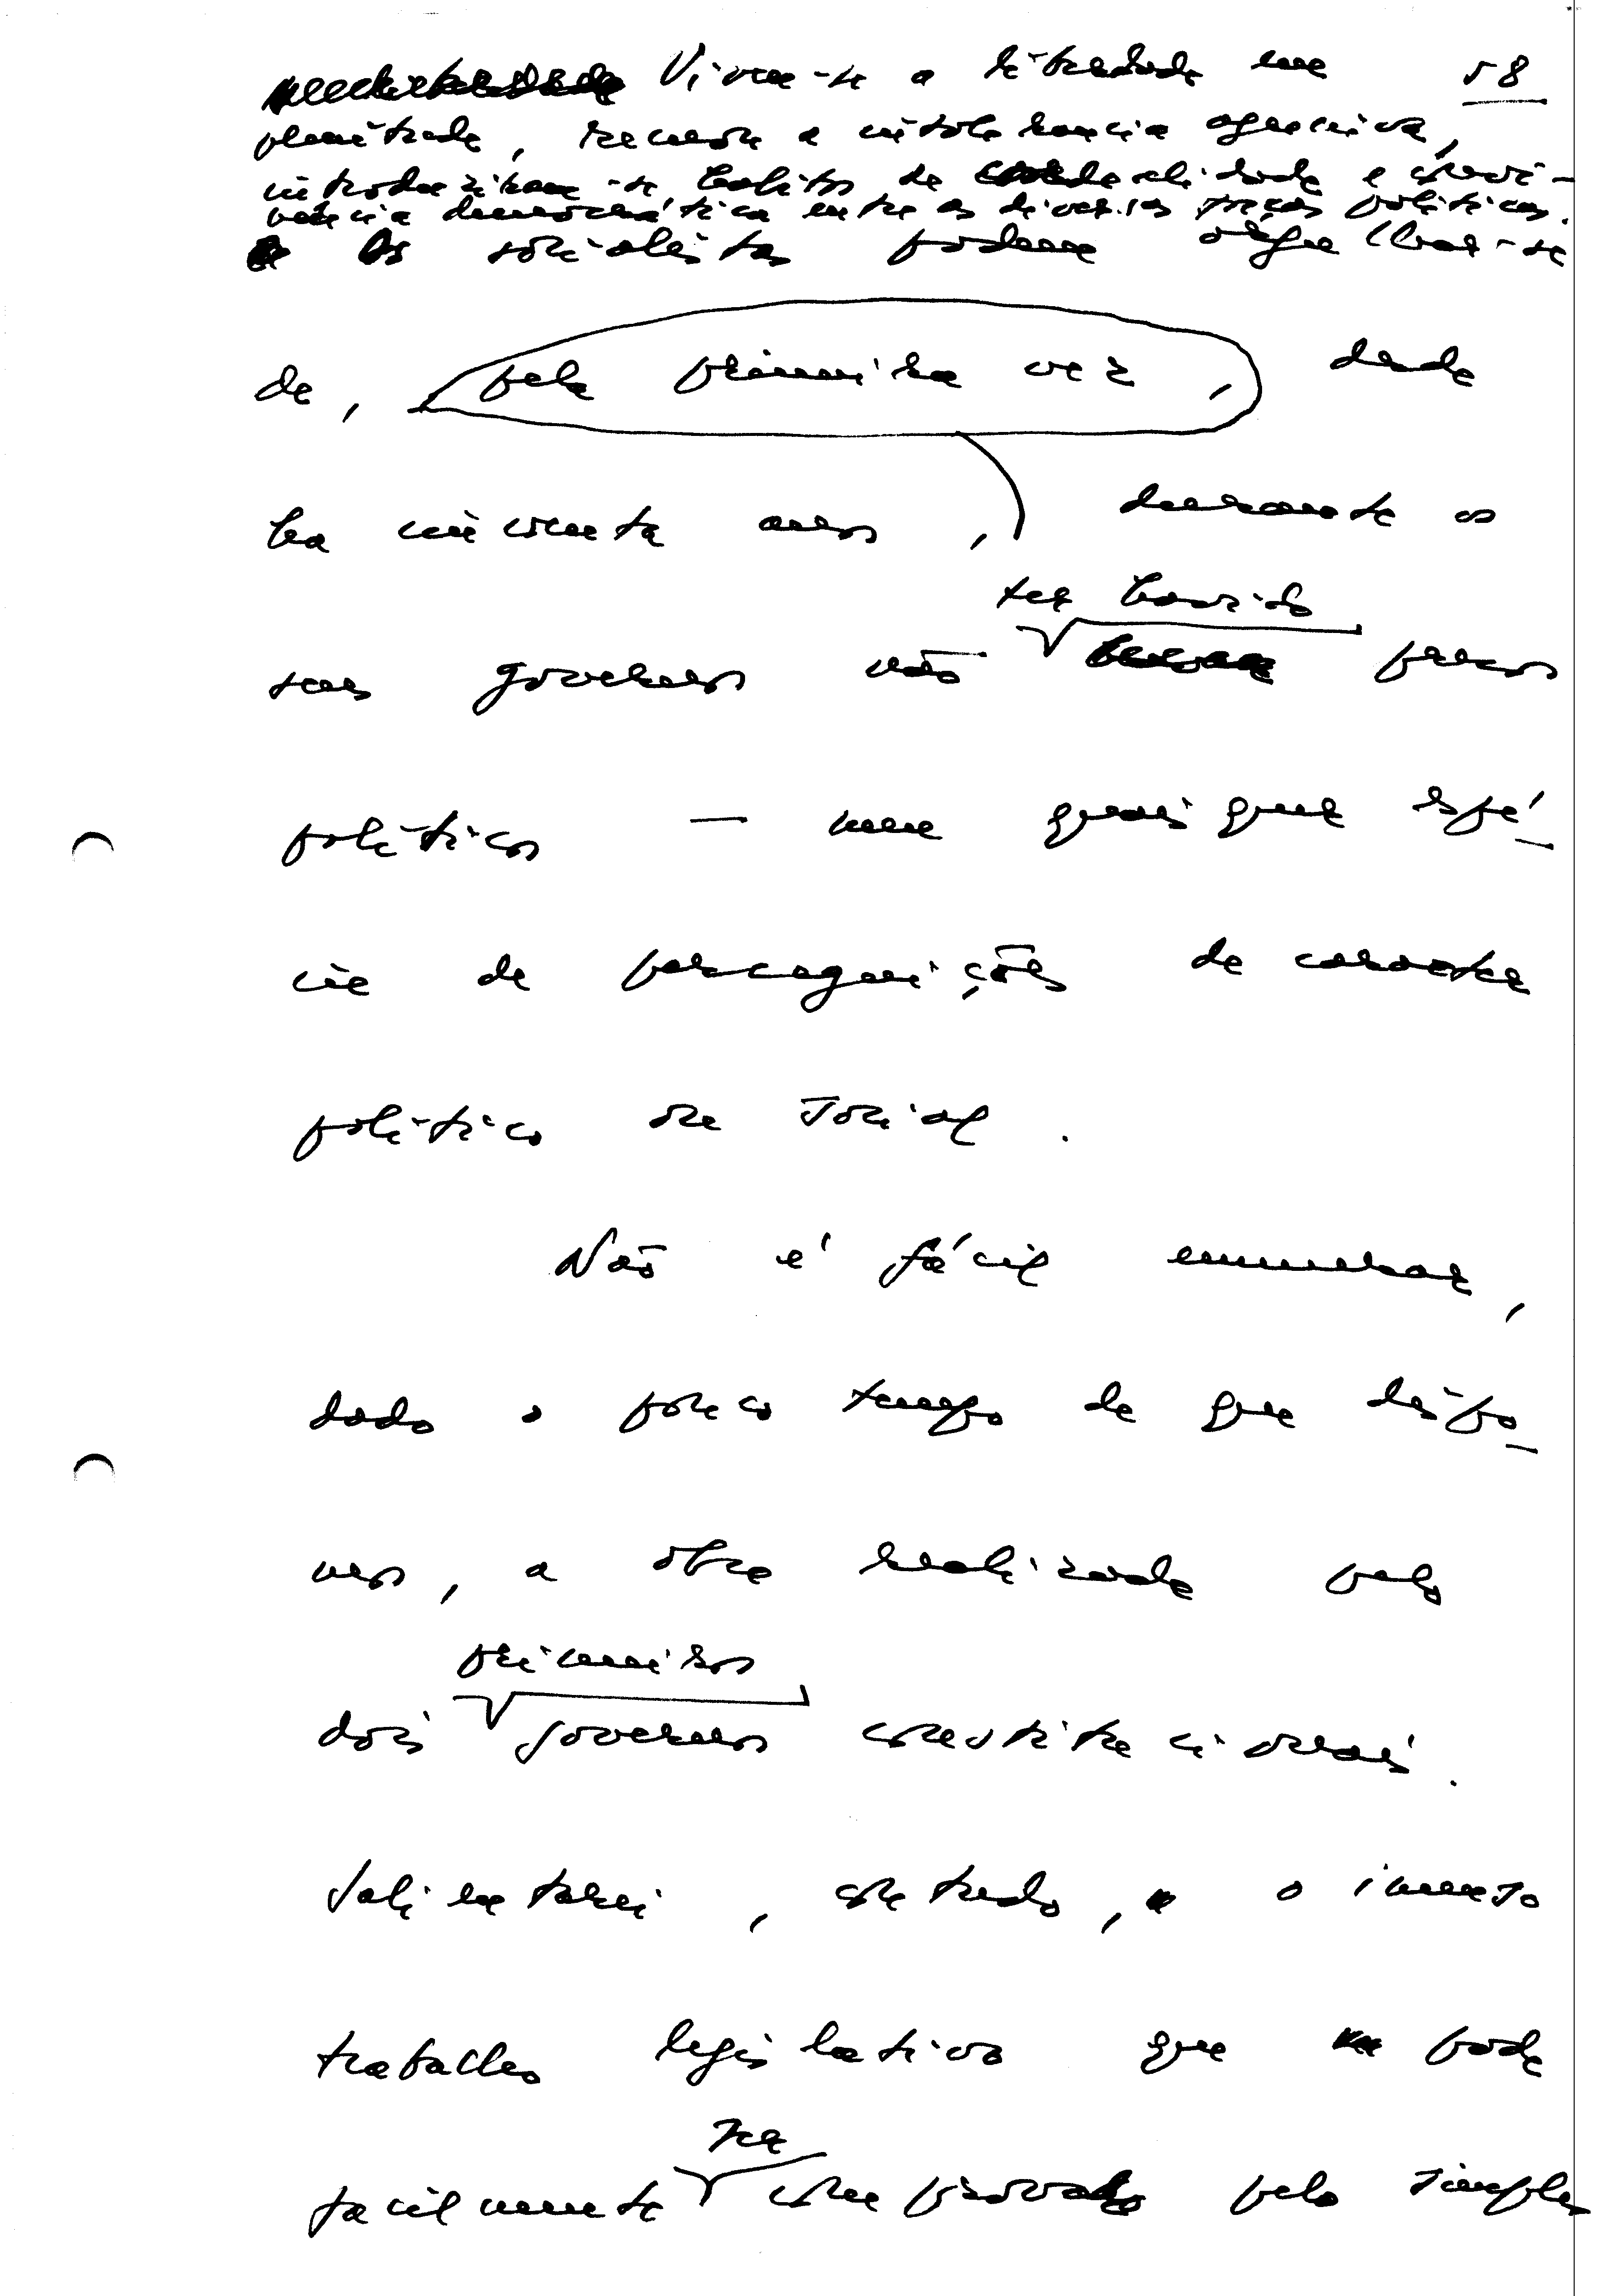 Viveu-se a liberdade em 58
plenitude, recuou a intolerância agressiva,
introduziram-se hábitos de cordialidade e convi-
vência democrática entre as diversas forças políticas.
Os socialistas podem orgulhar-se
de, pela primeira vez, desde
há cincoenta anos, durante os
seus governos não ter havido presos
políticos — nem quaisquer espé-
cie de perseguições de carácter
político ou social.
Não é fácil enumerar,
dado o pouco tempo de que dispo-
nho, a obra realizada pelos
dois primeiros governos constitucionais.
Salientarei, contudo, o imenso
trabalho legislativo que pode
facilmente ser comprovado pelo simples